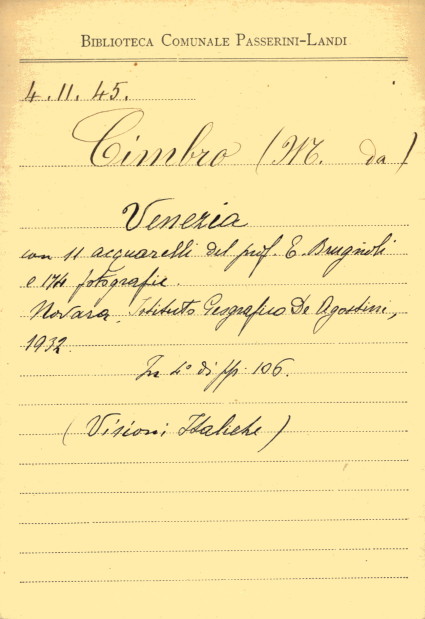 BIBLIOTECA COMUNALE PASSERINI-LANDI
4.11.45.
Cimbro (M. da)
Venezia
con 11 acquarelli del prof. E. Brugnoli
e 174 fotografie.
Novara, Istituto Geografico De Agostini,
1932.
In 4° di pp. 106.
(Visioni Italiche)